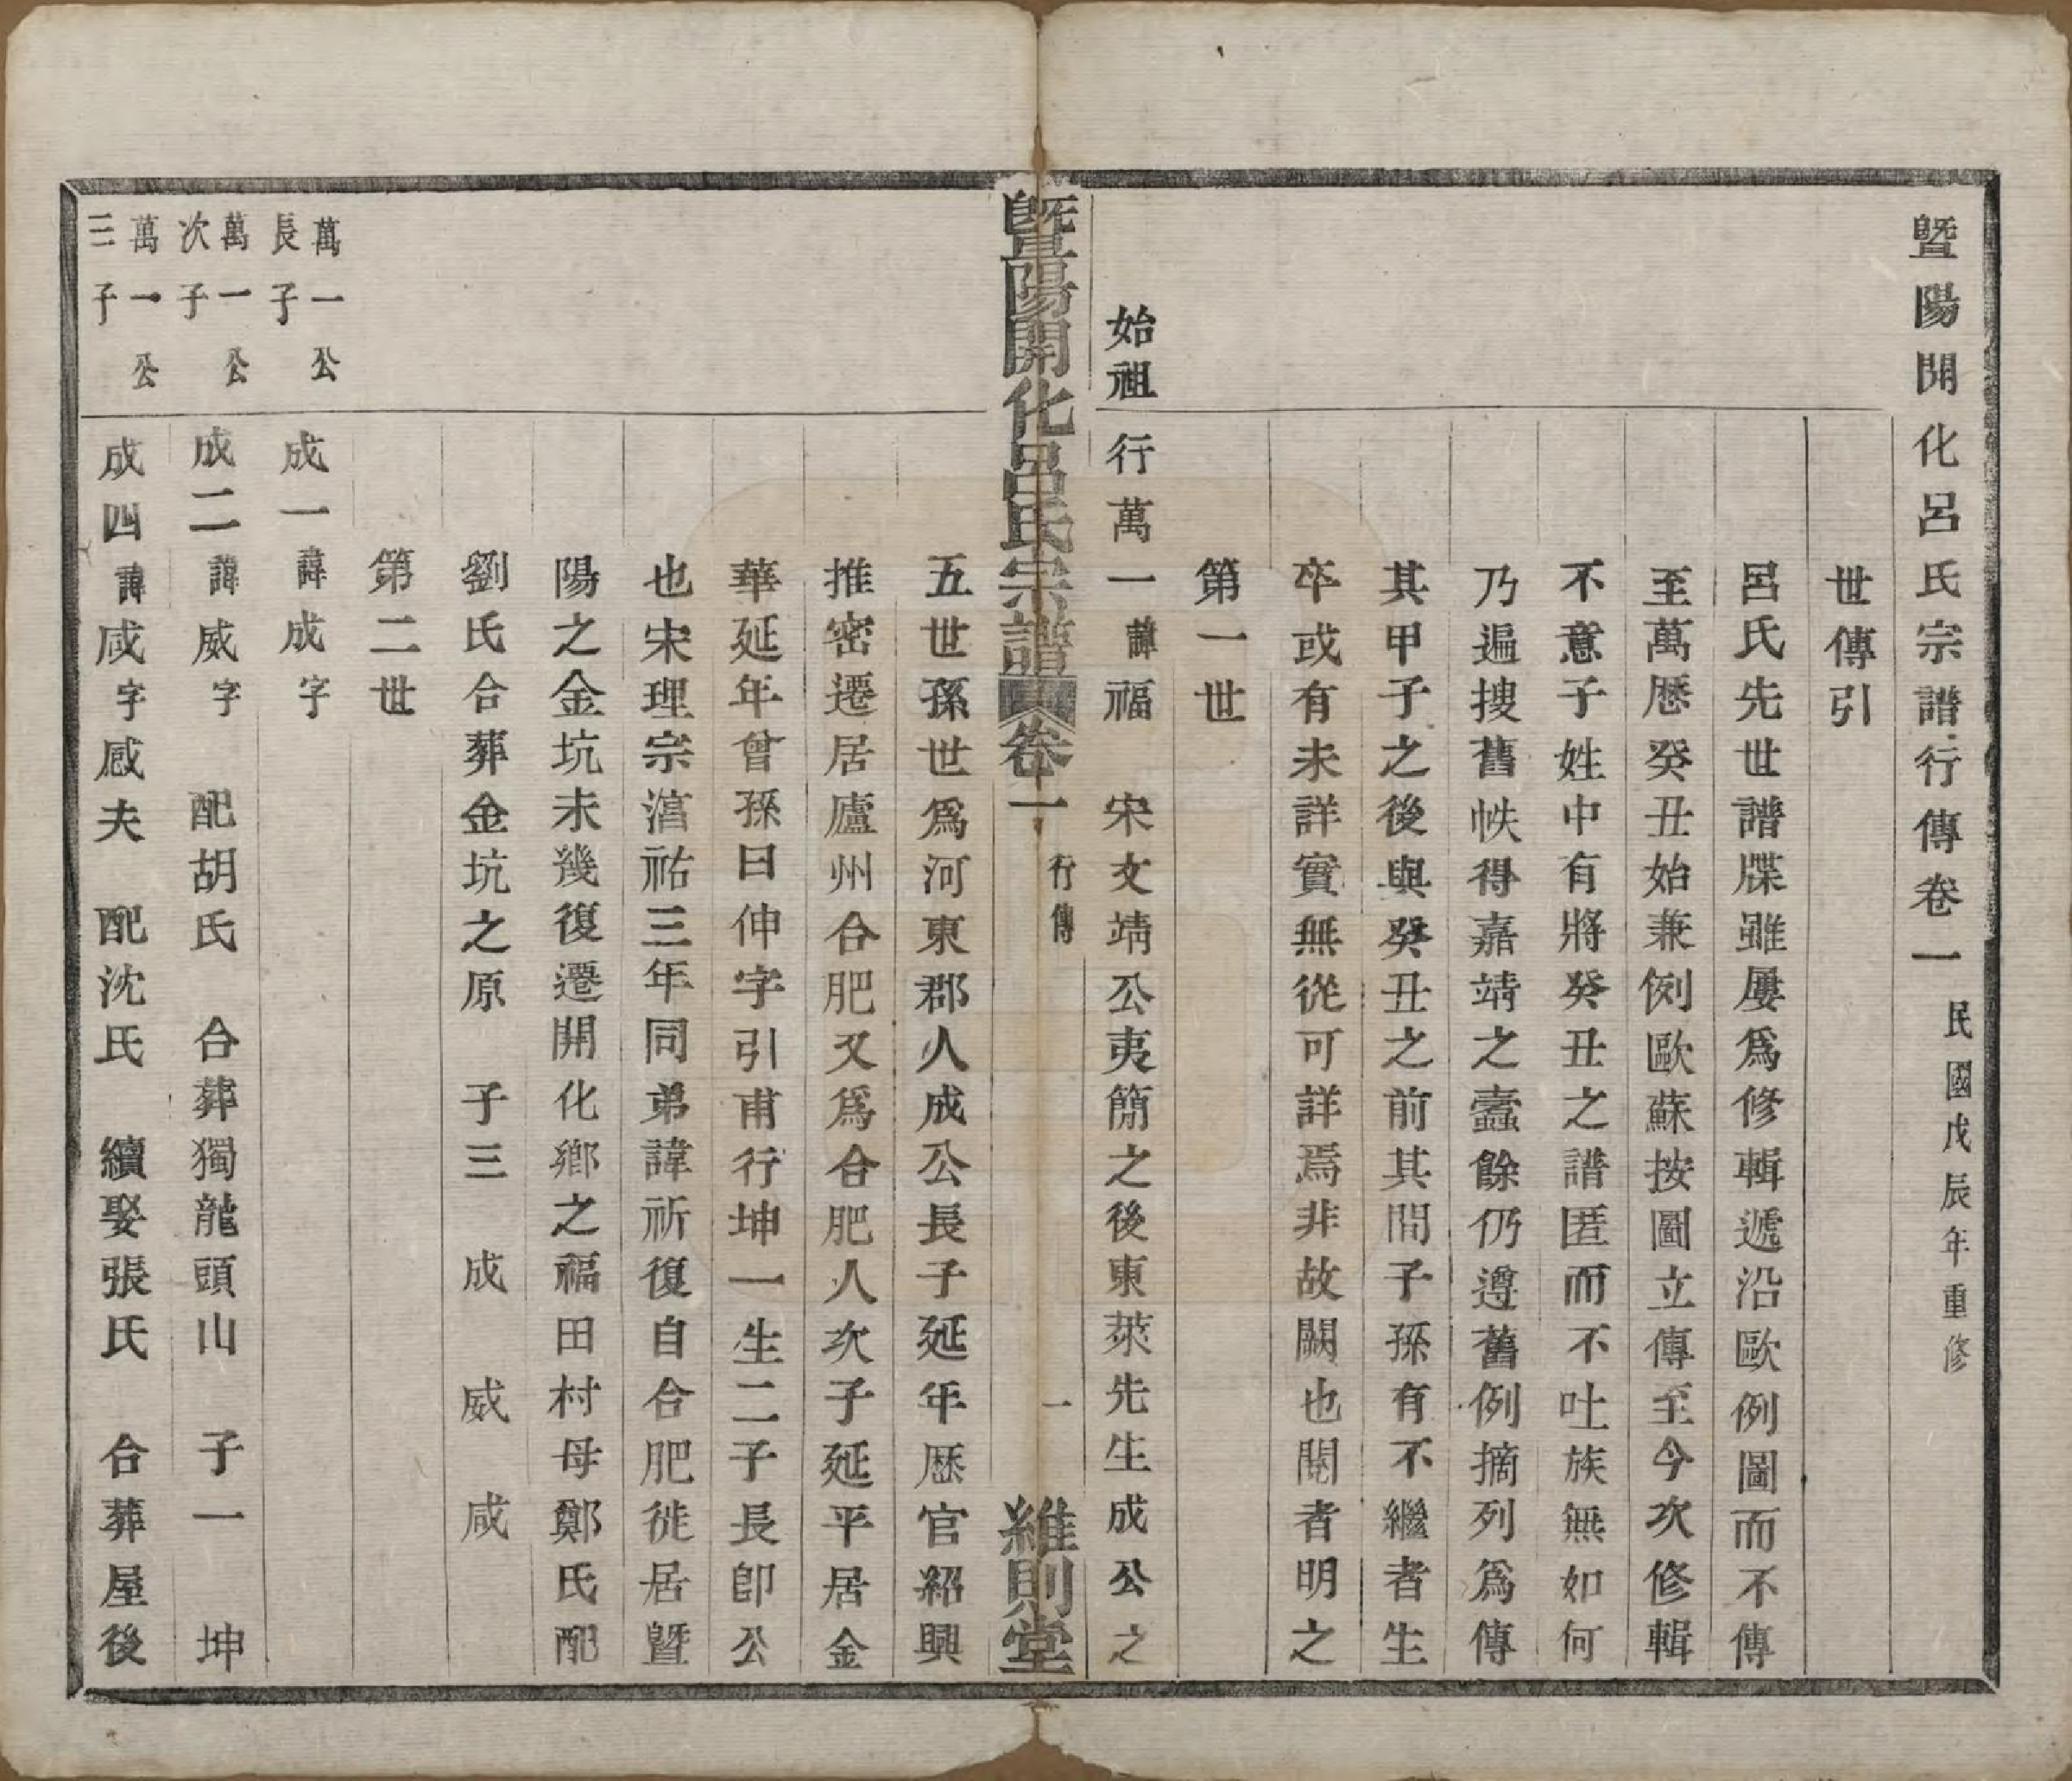 暨陽開化呂氏宗譜行傳卷一 民國戊辰年重修
世傳引
呂氏先世譜牒雖屢爲修輯遞沿歐例圖而不傳
至萬歷癸丑始兼例歐蘇按圖立傳至今次修輯
不意子姓中有將癸丑之譜匿而不吐族無如何
乃遍搜舊帙得嘉靖之蠹餘仍遵舊例摘列爲傳
其甲子之後與癸丑之前其間子孫有不繼者生
卒或有未詳實無從可詳焉非故闕也閱者明之
第一世
始祖 行萬一諱福 宋文靖公夷簡之後東萊先生成公之
暨陽開化呂氏宗譜 卷一 行傳 一 維則堂
五世孫世爲河東郡人成公長子延年歷官紹興
推密遷居廬州合肥又爲合肥人次子延平居金
華延年曾孫曰伸字引甫行坤一生二子長卽公
也宋理宗湻祐三年同弟諱祈復自合肥徙居暨
陽之金坑未幾復遷開化鄉之福田村母鄭氏配
劉氏合葬金坑之原 子三 成 威 咸
第二世
萬一公長子 成一諱成字
萬一公次子 成二諱威字 配胡氏 合葬獨龍頭山 子一 坤
萬一公三子 成四諱咸字感夫 配沈氏 續娶張氏 合葬屋後